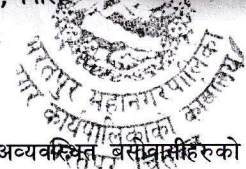 भरतपुर महानगरपालिका
नगर कार्यपालिकाको कार्यालय
अव्यवस्थित बसोवासीहरुको